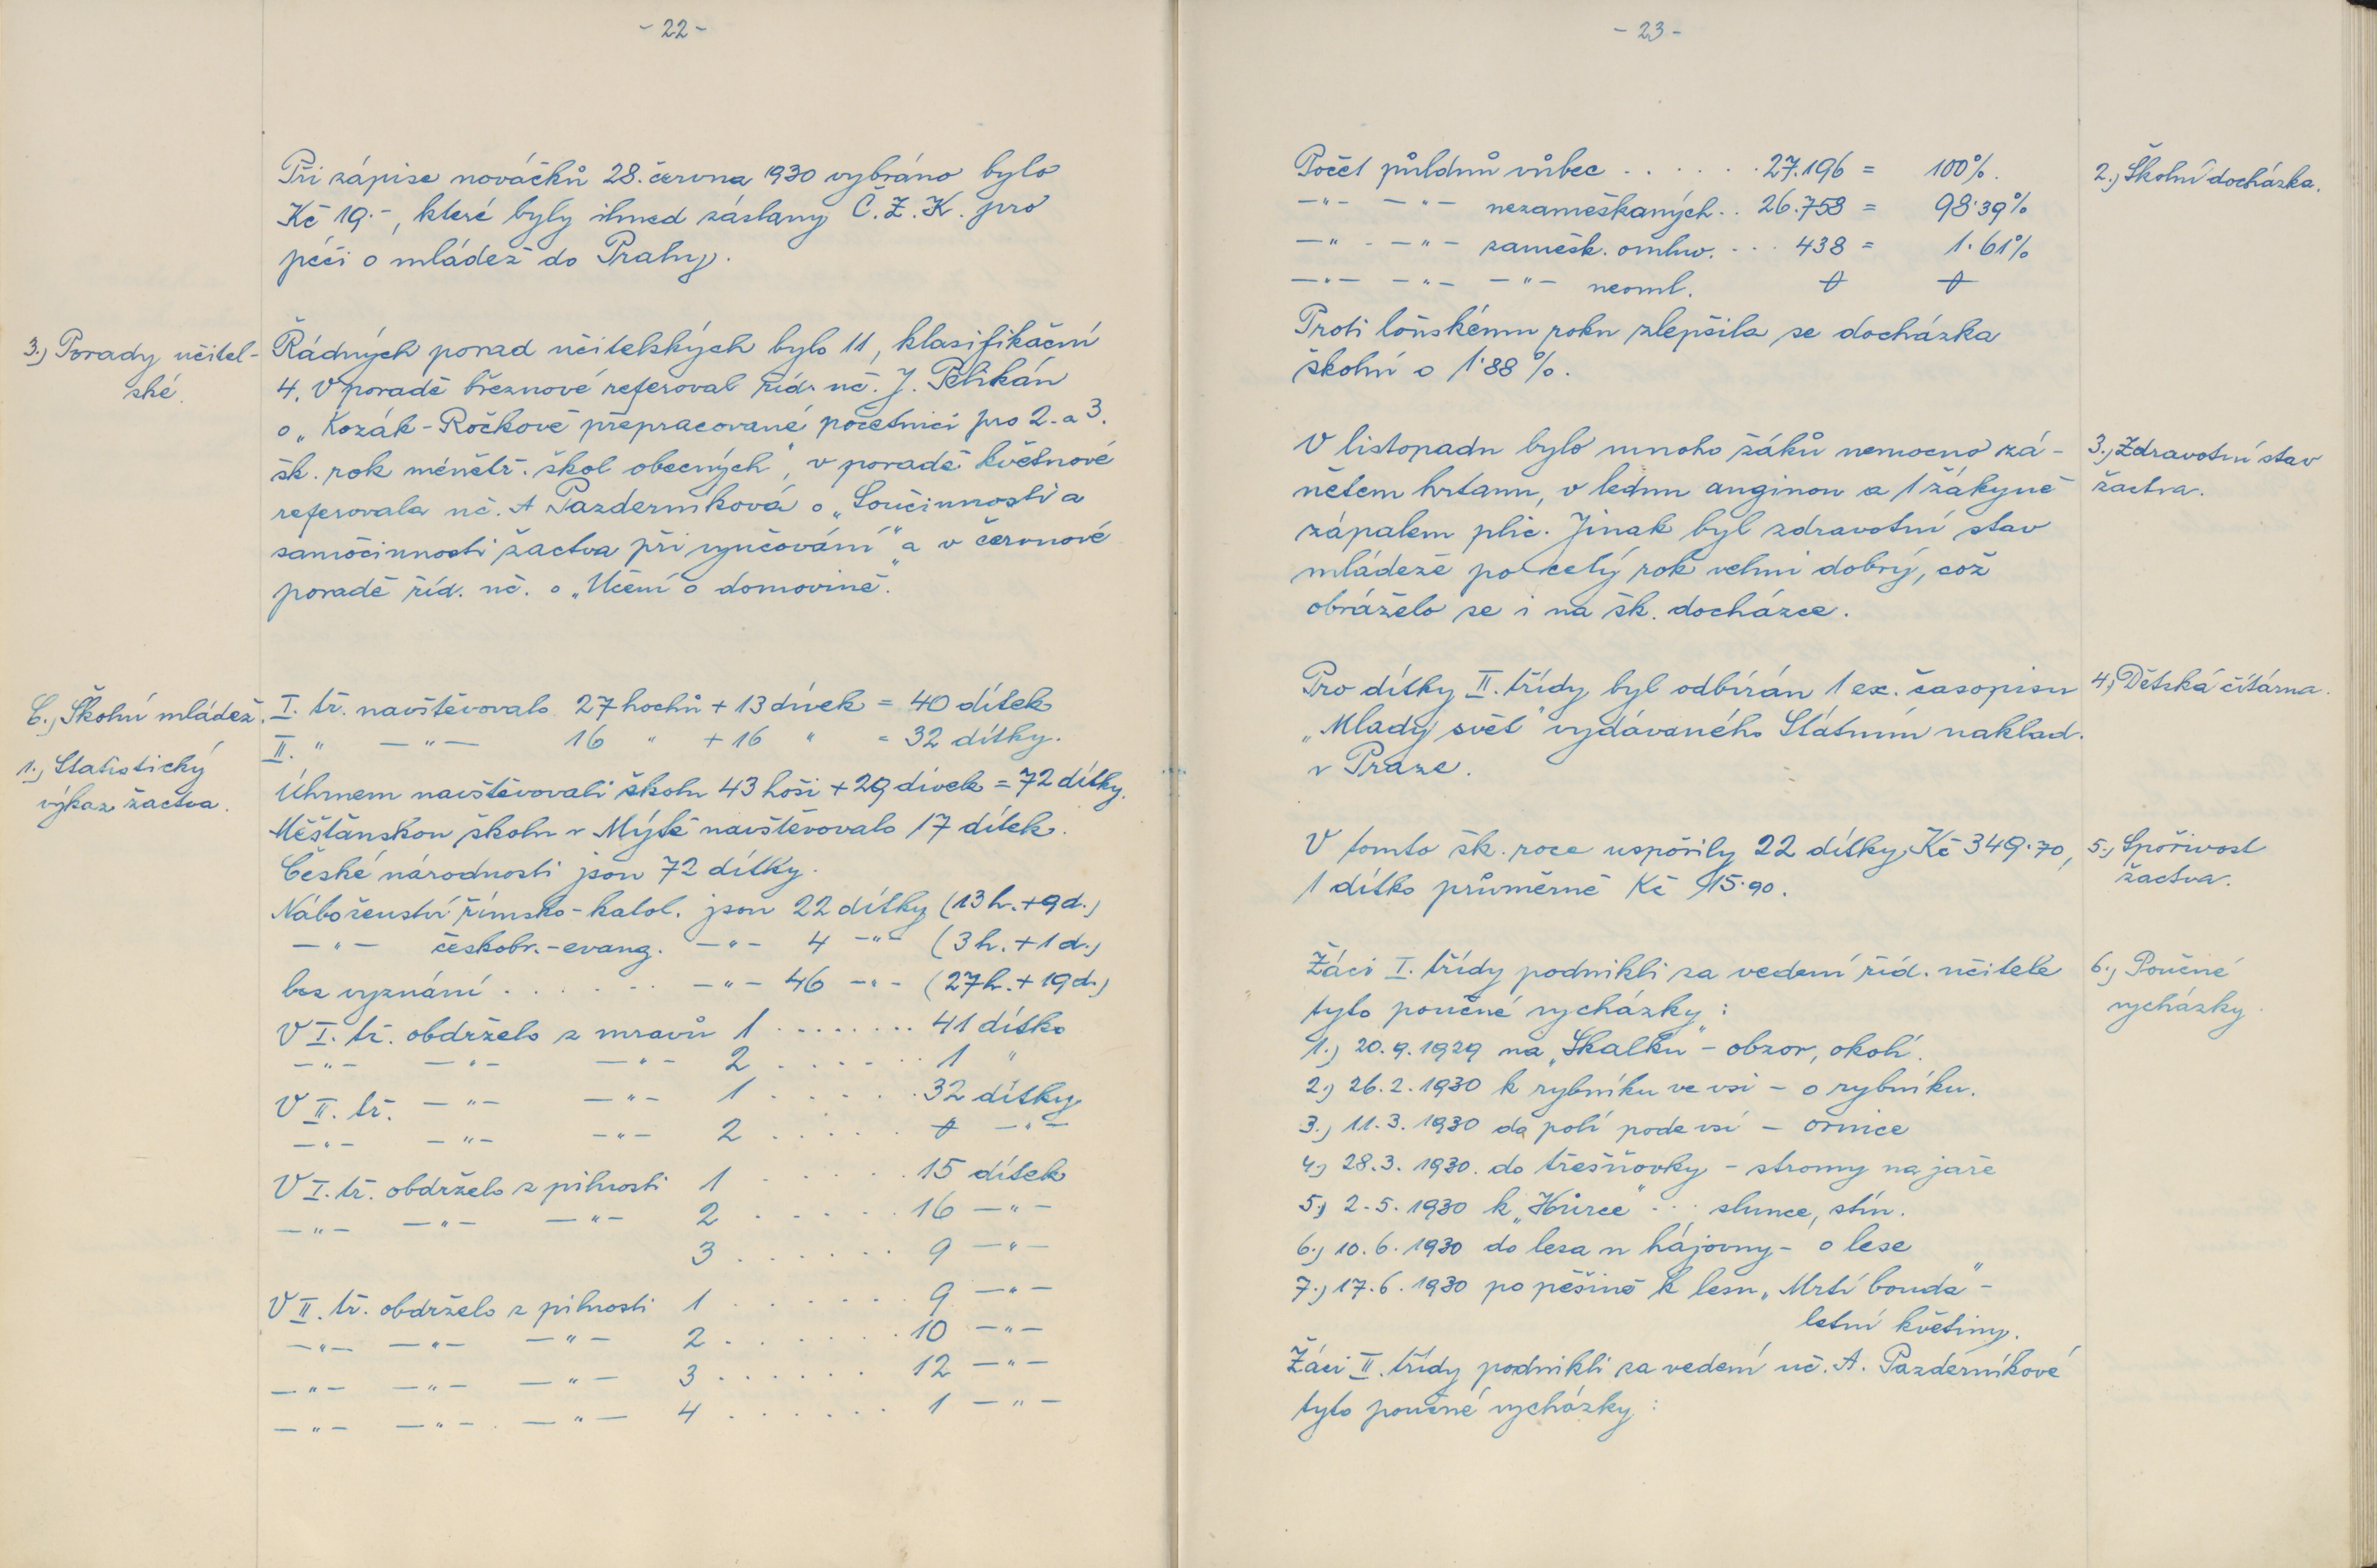 - 22 -
Při zápise nováčků 28. června 1930 vybráno bylo
Kč 19.-, které byly ihned záslany Č.Ž.K. pro
péči o mládež do Prahy.
3.) Porady učitel-
ské.
Řádných porad učitelských bylo 11, klasifikační
4. V poradě březnové referoval říd. uč. J. Pelikán
o „Kozák-Ročkově přepracované početnici pro 2. a 3.
šk. rok ménětř. škol obecných", v poradě květnové
referovala uč. A Pazderníková o „Součinnosti a
samočinnosti žactva při vyučování" a v červnové
poradě říd. uč. o „Učení o domovině."
C.) Školní mládež.
1.) Statistický
výkaz žactva.
I. tř. navštěvovalo 27 hochů + 13 dívek = 40 dítek
II. " -"- 16 " + 16 " = 32 dítky.
Úhrnem navštěvovali školu 43 hoši + 29 dívek = 72 dítky.
Měšťanskou školu v Mýtě navštěvovalo 17 dítek.
České národnosti jsou 72 dítky.
Náboženství římsko-katol. jsou 22 dítky (13 h. + 9 d.)
-"- českobr.-evang. -"- 4 -"- (3 h. + 1 d.)
bez vyznání . . . . . . -"- 46 -"- (27 h. + 19 d.)
V I. tř. obdrželo z mravů 1 . . . . . . . . 41 dítko
-"- -"- -"- 2 . . . . . . 1 "
V II. tř. -"- -"- 1 . . . . . . 32 dítky
-"- -"- -"- 2 . . . . . 0 -"-
V I. tř. obdrželo z pilnosti 1 . . . . . 15 dítek
-"- -"- -"- 2 . . . . . 16 -"-
3 . . . . . . 9 -"-
V II. tř. obdrželo z pilnosti 1 . . . . . . 9 -"-
-"- -"- -"- 2 . . . . . . 10 -"-
-"- -"- -"- 3 . . . . . . 12 -"-
-"- -"- -"- 4 . . . . . . 1 -"-
- 23 -
2.) Školní docházka.
Počet půldnů vůbec . . . . . . 27.196 = 100%.
-"- -"- nezameškaných . . 26.758 = 98·39%
-"- -"- zamešk. omluv. . . . 438 = 1·61%
-"- -"- -"- neoml. 0 0
Proti loňskému roku zlepšila se docházka
školní o 1·88 %.
3.) Zdravotní stav
žactva.
V listopadu bylo mnoho žáků nemocno zá-
nětem hrtanu, v lednu anginou a 1 žákyně
zápalem plic. Jinak byl zdravotní stav
mládeže po celý rok velmi dobrý, což
obráželo se i na šk. docházce.
4.) Dětská čítárna.
Pro dítky II. třídy byl odbírán 1 ex. časopisu
„Mladý svět" vydávaného Státním naklad.
v Praze.
5.) Spořivost
žactva.
V tomto šk. roce uspořily 22 dítky Kč 349·70,
1 dítko průměrně Kč 15·90.
6.) Poučné
vycházky.
Žáci I. třídy podnikli za vedení říd. učitele
tyto poučné vycházky:
1.) 20. 9. 1929 na „Skalku" - obzor, okolí.
2.) 26. 2. 1930 k rybníku ve vsi - o rybníku.
3.) 11. 3. 1930 do polí pode vsí - ornice
4.) 28. 3. 1930. do třešňovky - stromy na jaře
5.) 2. 5. 1930 k „Hůrce" . . . slunce, stín.
6.) 10. 6. 1930 do lesa u hájovny - o lese
7.) 17. 6. 1930 po pěšině k lesu „Mrtí bouda" -
letní květiny.
Žáci II. třídy podnikli za vedení uč. A. Pazderníkové
tyto poučné vycházky: